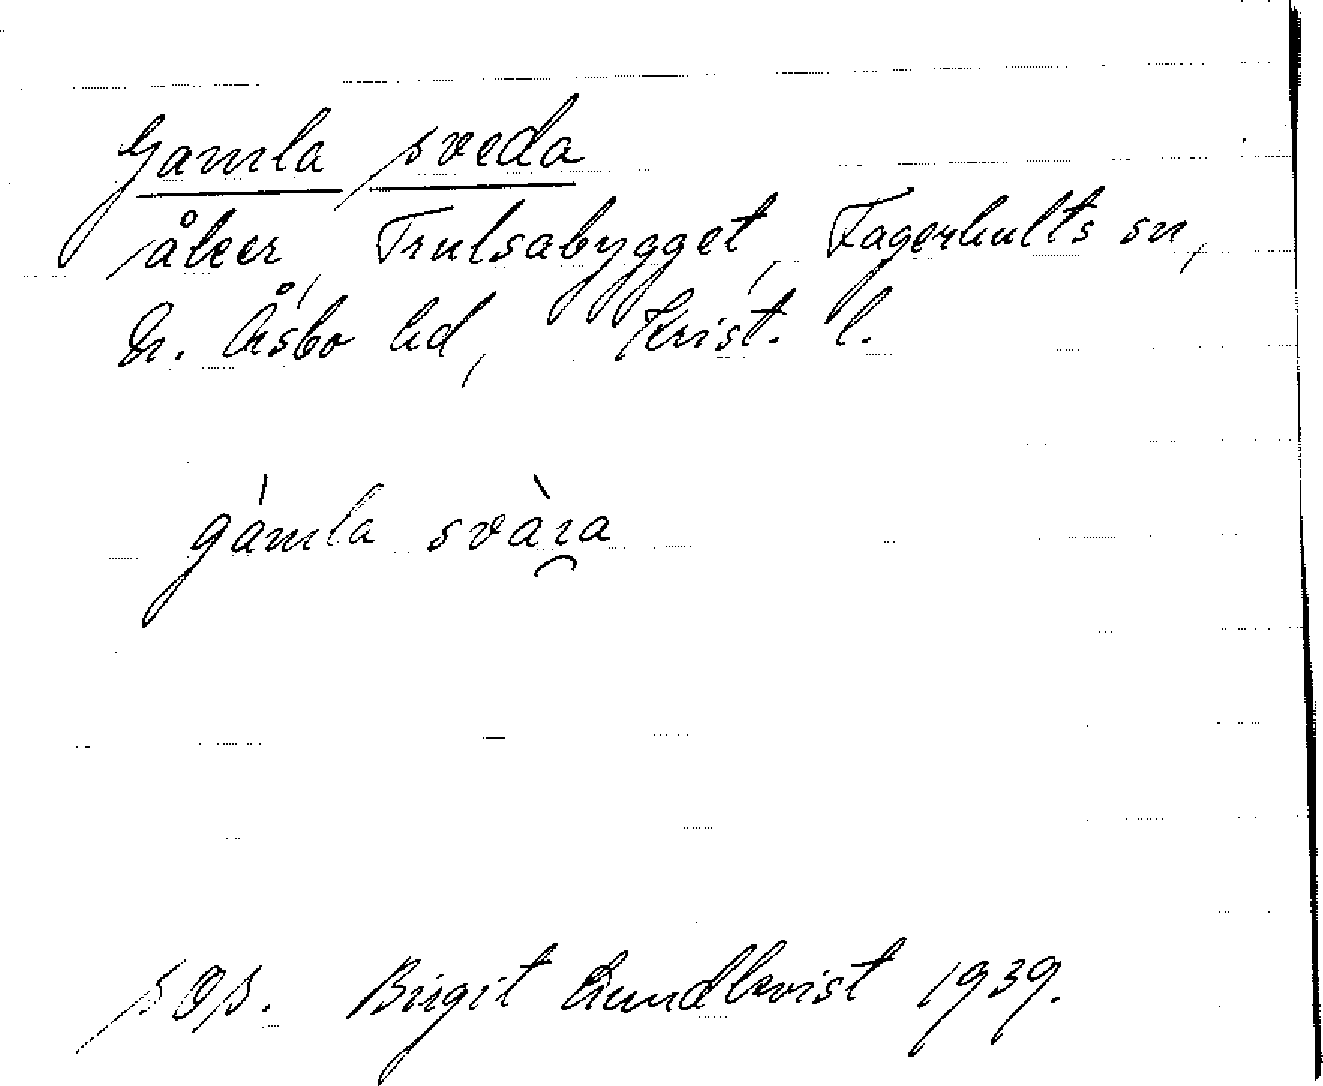 Gamla sveda
åker, Trulsabygget, Fagerhults sn,
N. Åsbo hd, Krist. l.
gámla svàra
Birgit Lundkvist 1939.